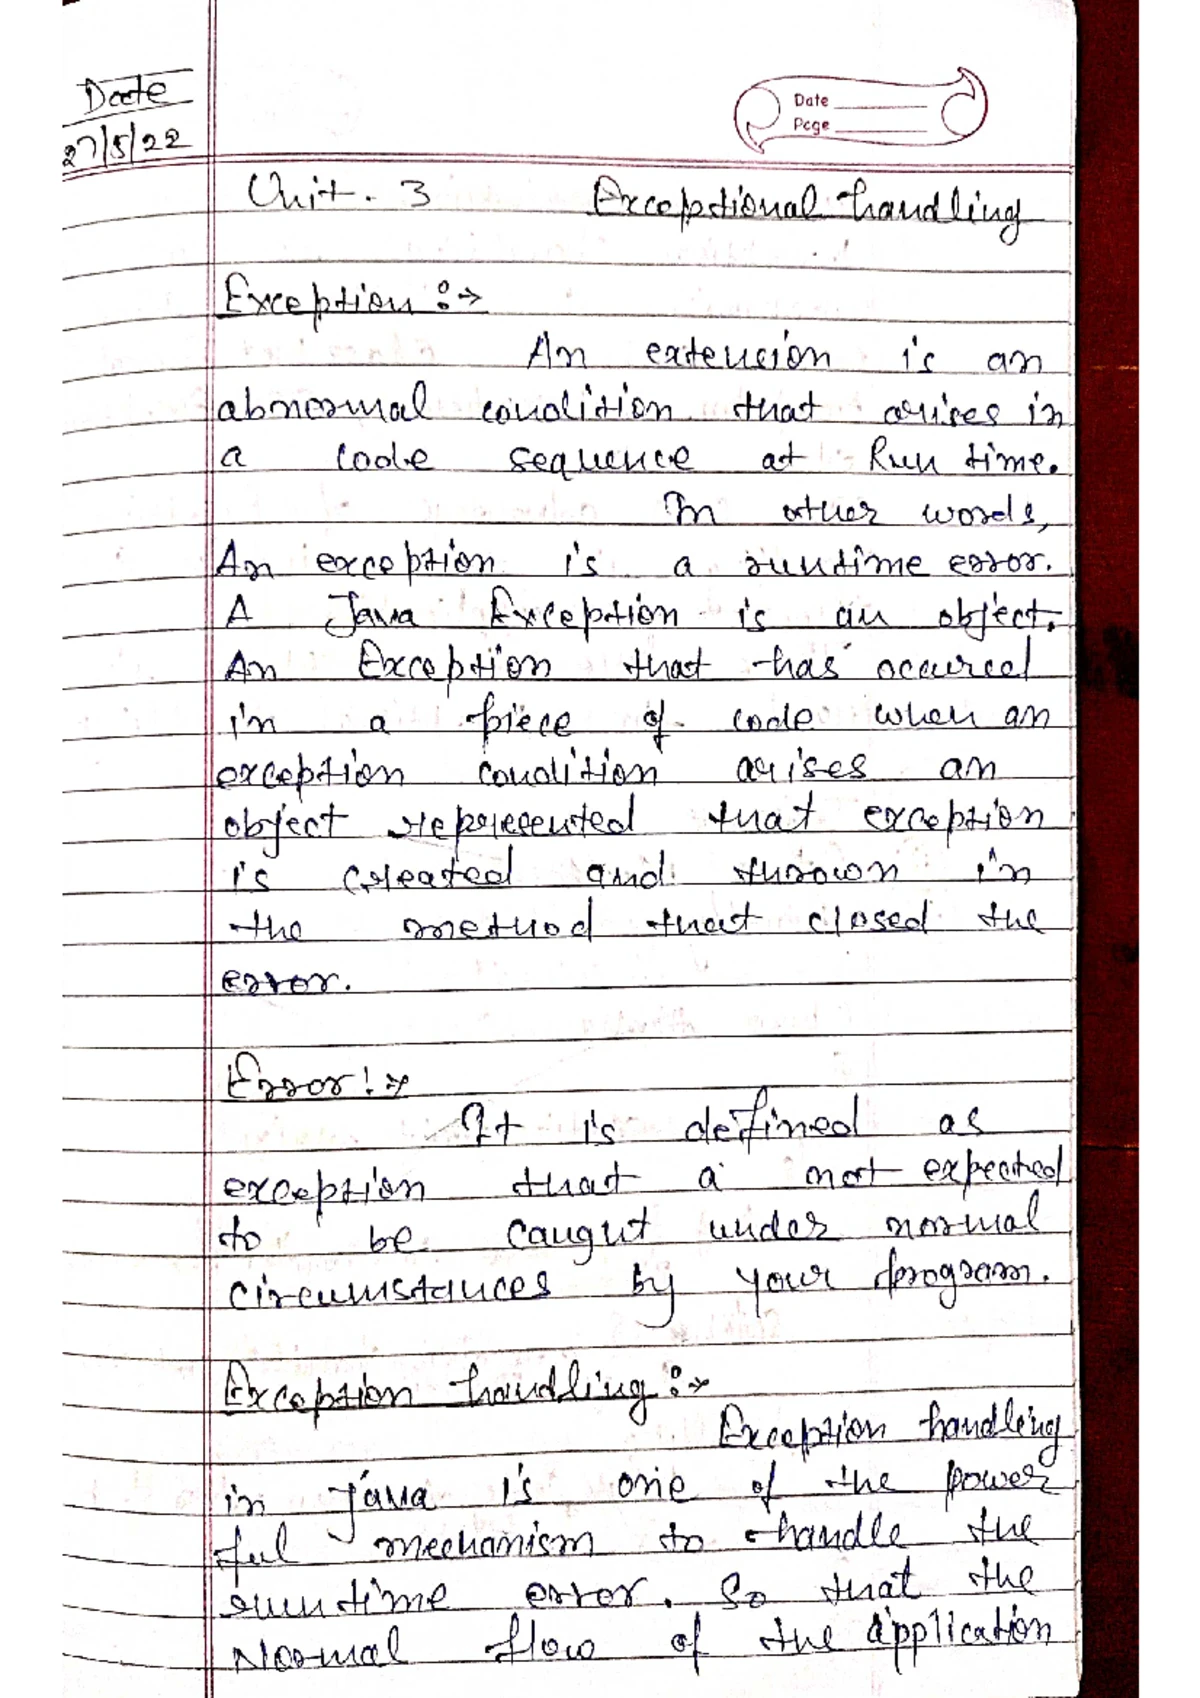 Date
27/5/22
Date
Page
Unit. 3 Exceptional handling
Exception :→
An extension is an
abnormal condition that arises in
a code sequence at Run time.
In other words,
An exception is a runtime error.
A Java Exception is an object.
An Exception that has occured
in a piece of code when an
exception condition arises an
object represented that exception
is created and thrown in
the method that closed the
error.
Error !→
It is defined as
exception that a not expected
to be caught under normal
circumstances by your program.
Exception handling :→
Exception handling
in Java is one of the power
ful mechanism to handle the
runtime error. So that the
Normal flow of the application